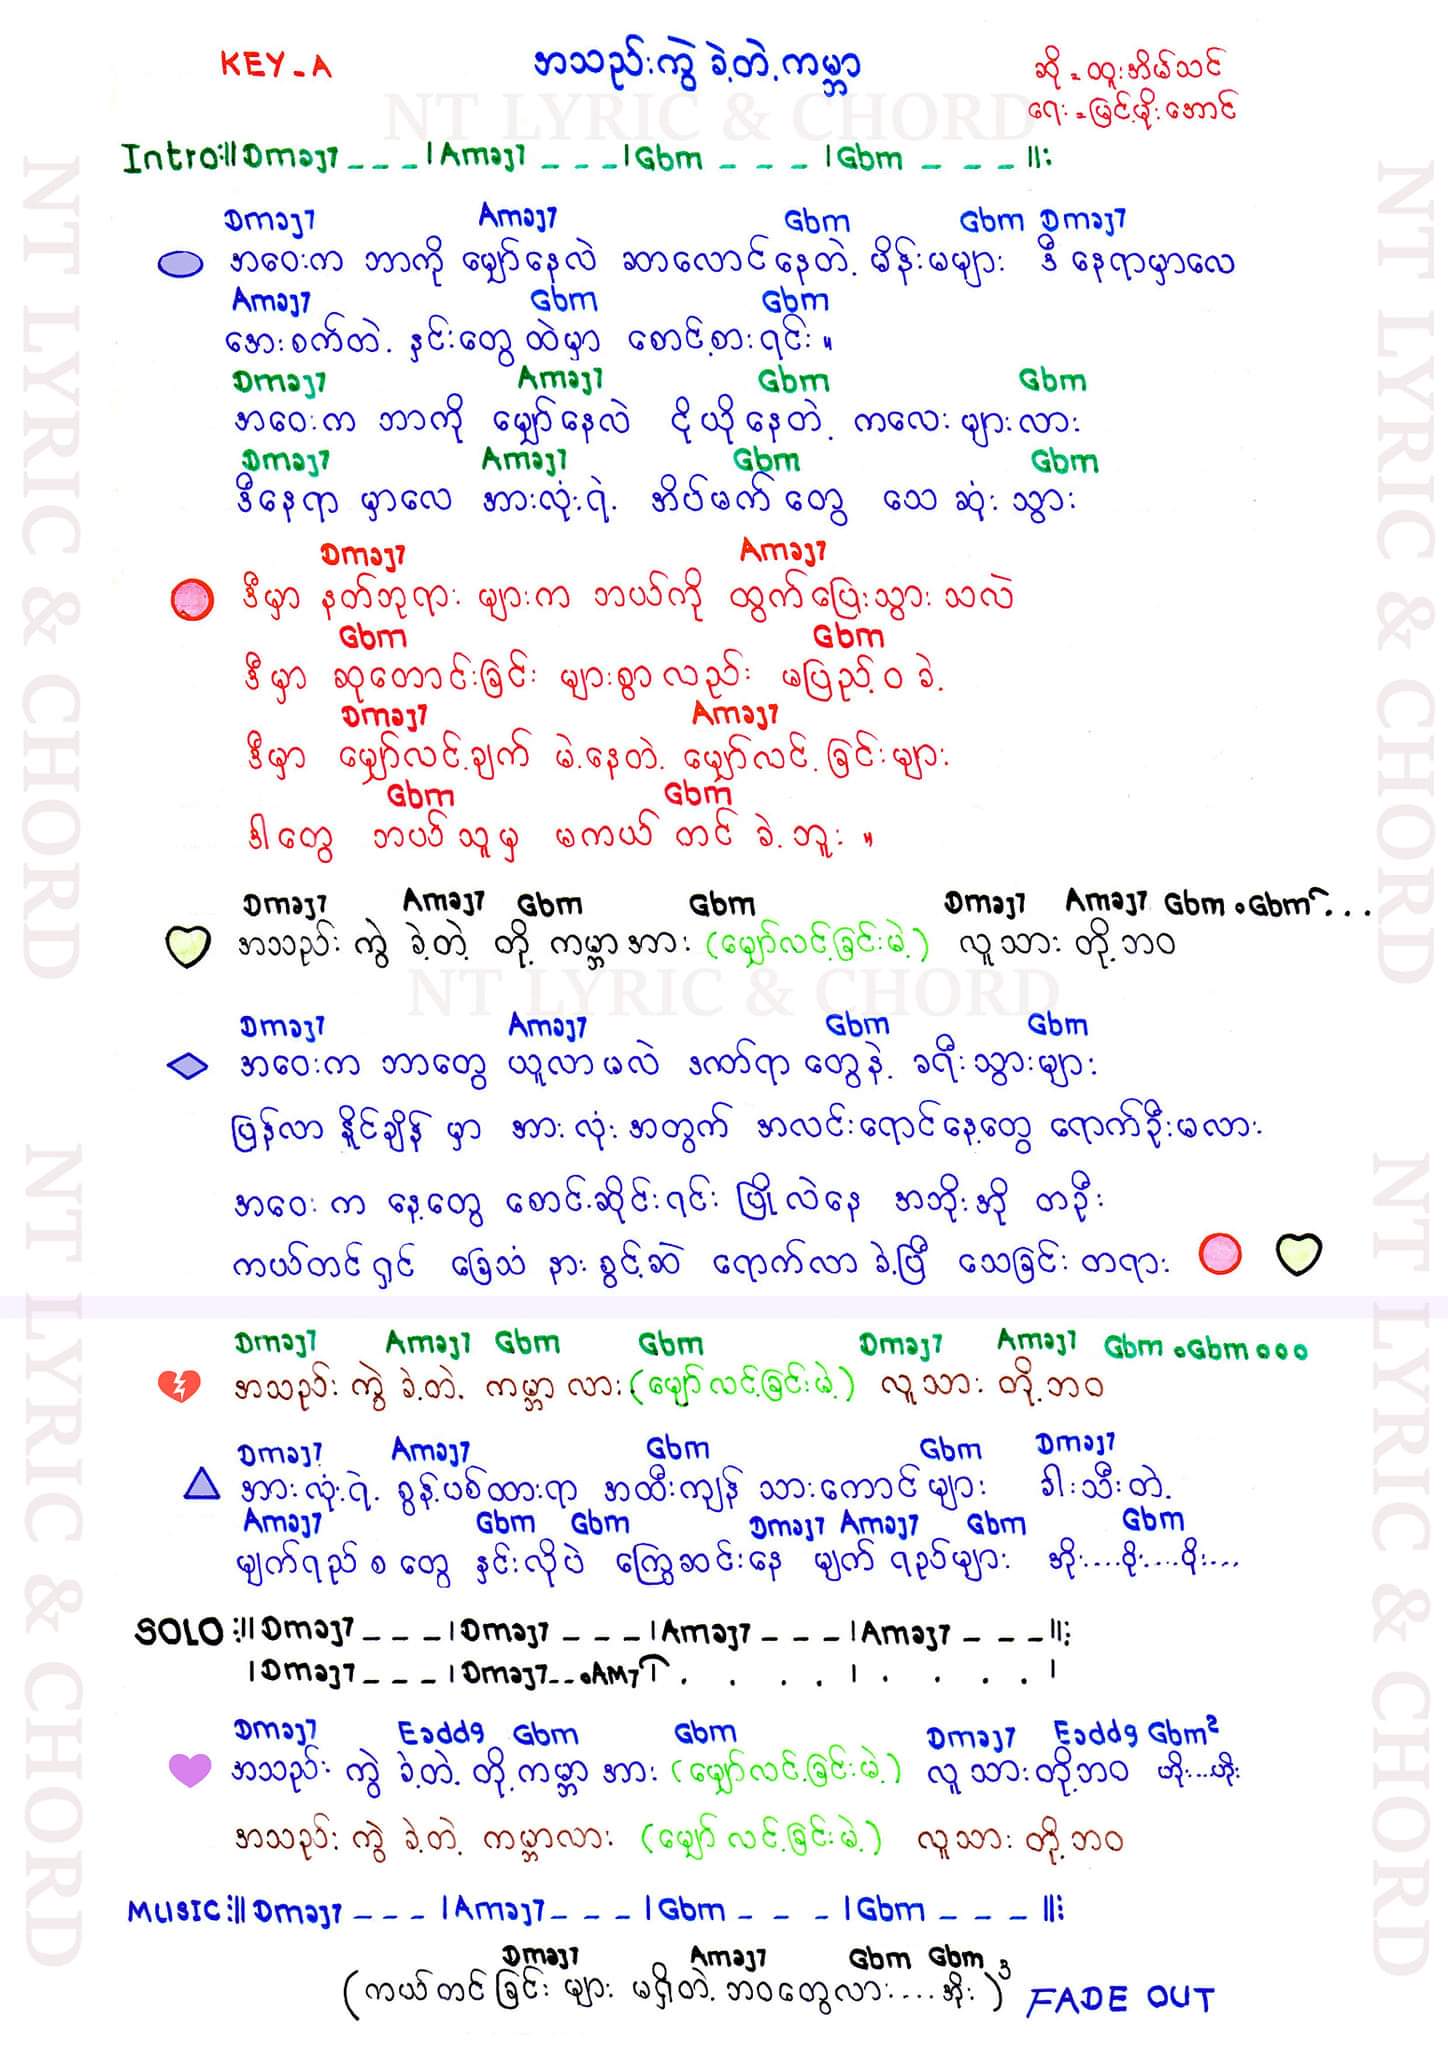 KEY-A
အသည်းကွဲခဲ့တဲ့ကမ္ဘာ
ဆို = ထူးအိမ်သင်
ရေး = မြင့်မိုးအောင်
NT LYRIC & CHORD
Intro:||Dmaj7 _ _ _ |Amaj7 _ _ _ |Gbm _ _ _ |Gbm _ _ _ ||:
Dmaj7 Amaj7 Gbm Gbm Dmaj7
အဝေးက ဘာကို မျှော်နေလဲ ဆာလောင်နေတဲ့ မိန်းမများ ဒီ နေရာမှာလေ
Amaj7 Gbm Gbm
အေးစက်တဲ့ နှင်းတွေထဲမှာ စောင့်စားရင်း ။
Dmaj7 Amaj7 Gbm Gbm
အဝေးက ဘာကို မျှော်နေလဲ ငိုယိုနေတဲ့ ကလေးများလား
Dmaj7 Amaj7 Gbm Gbm
ဒီနေရာ မှာလေ အားလုံးရဲ့ အိပ်မက်တွေ သေဆုံးသွား
Dmaj7 Amaj7
ဒီမှာ နတ်ဘုရားများက ဘယ်ကို ထွက်ပြေးသွားသလဲ
Gbm Gbm
ဒီမှာ ဆုတောင်းခြင်း များစွာလည်း မပြည့်ဝခဲ့
Dmaj7 Amaj7
ဒီမှာ မျှော်လင့်ချက် မဲ့နေတဲ့ မျှော်လင့်ခြင်းများ
Gbm Gbm
ဒါတွေ ဘယ်သူမှ မကယ်တင်ခဲ့ဘူး ။
Dmaj7 Amaj7 Gbm Gbm Dmaj7 Amaj7 Gbm.Gbm...
အသည်းကွဲခဲ့တဲ့ တို့ ကမ္ဘာအား (မျှော်လင့်ခြင်းမဲ့) လူသားတို့ဘဝ
NT LYRIC & CHORD
Dmaj7 Amaj7 Gbm Gbm
အဝေးက ဘာတွေ ယူလာမလဲ ဒဏ်ရာတွေနဲ့ ခရီးသွားများ
ပြန်လာ နိူင်ချိန် မှာ အားလုံးအတွက် အလင်းရောင်နေ့တွေ ရောက်ဦးမလား
အဝေးက နေ့တွေ စောင်းဆိုင်းရင်း ဗြိုလဲနေ အဘိုးအို တဦး
ကယ်တင်ရှင် ခြေသံ နားစွင့်ဆဲ ရောက်လာခဲ့ပြီ သေခြင်းတရား
Dmaj7 Amaj7 Gbm Gbm Dmaj7 Amaj7 Gbm.Gbm...
အသည်းကွဲခဲ့တဲ့ ကမ္ဘာလား (မျှော်လင့်ခြင်းမဲ့) လူသားတို့ဘဝ
Dmaj7 Amaj7 Gbm Gbm Dmaj7
အားလုံးရဲ့ စွန့်ပစ်ထားရာ အထီးကျန် သားကောင်များ ခါးသီးတဲ့
Amaj7 Gbm Gbm Dmaj7 Amaj7 Gbm Gbm
မျက်ရည်စတွေ နှင်းလိုပဲ ကြွေဆင်းနေ မျက်ရည်များ အိုး....
SOLO:||Dmaj7 _ _ _ |Dmaj7 _ _ _ |Amaj7 _ _ _ |Amaj7 _ _ _ ||:
|Dmaj7 _ _ _ |Dmaj7 _ _ .AM7 | . . . . | . . . . |
Dmaj7 Eadd9 Gbm Gbm Dmaj7 Eadd9 Gbm²
အသည်းကွဲခဲ့တဲ့ တို့ကမ္ဘာအား (မျှော်လင့်ခြင်းမဲ့) လူသားတို့ဘဝ ဟိုး...ဟိုး
အသည်းကွဲခဲ့တဲ့ ကမ္ဘာလား (မျှော်လင့်ခြင်းမဲ့) လူသားတို့ဘဝ
MUSIC:||Dmaj7 _ _ _ |Amaj7 _ _ _ |Gbm _ _ _ |Gbm _ _ _ ||:
Dmaj7 Amaj7 Gbm Gbm
(ကယ်တင်ခြင်းများ မရှိတဲ့ဘဝတွေလား....အိုး)³ FADE OUT
NT LYRIC & CHORD
NT LYRIC & CHORD
NT LYRIC & CHORD
NT LYRIC & CHORD